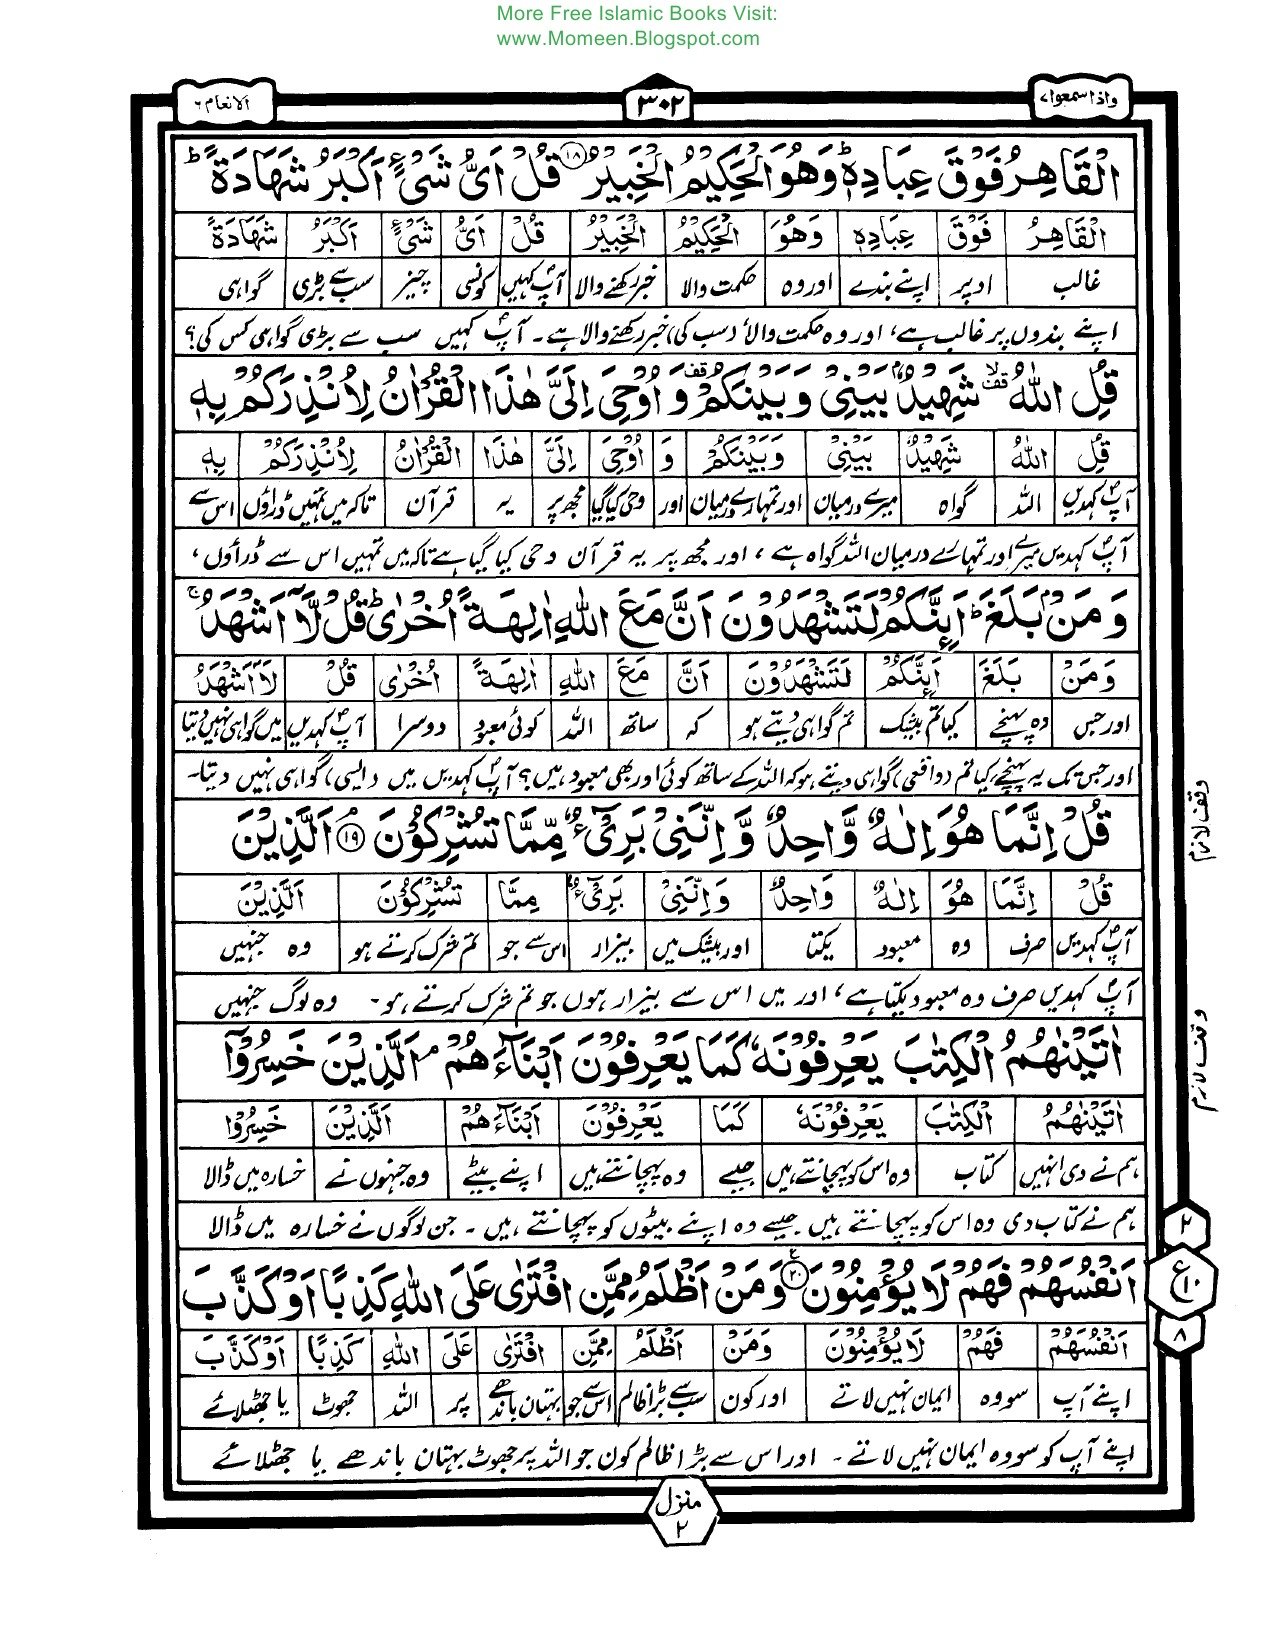 More Free Islamic Books Visit:
www.Momeen.Blogspot.com
واذا سمعوا ۷
۳۰۲
الانعام ۶
الْقَاهِرُ فَوْقَ عِبَادِهٖ ؕ وَهُوَ الْحَكِيْمُ الْخَبِيْرُ ﴿۱۸﴾ قُلْ اَىُّ شَىْءٍ اَكْبَرُ شَهَادَةً ؕ
الْقَاهِرُ فَوْقَ عِبَادِهٖ وَهُوَ الْحَكِيْمُ الْخَبِيْرُ قُلْ اَىُّ شَىْءٍ اَكْبَرُ شَهَادَةً
غالب اوپر اپنے بندے اور وہ حکمت والا خبر رکھنے والا آپؐ کہیں کونسی چیز سب سے بڑی گواہی
اپنے بندوں پر غالب ہے، اور وہ حکمت والا (سب کی) خبر رکھنے والا ہے۔ آپؐ کہیں سب سے بڑی گواہی کس کی؟
قُلِ اللّٰهُ ۙ قف شَهِيْدٌۢ بَيْنِىْ وَبَيْنَكُمْ قف وَاُوْحِىَ اِلَىَّ هٰذَا الْقُرْاٰنُ لِاُنْذِرَكُمْ بِهٖ
قُلِ اللّٰهُ شَهِيْدٌ بَيْنِىْ وَبَيْنَكُمْ وَ اُوْحِىَ اِلَىَّ هٰذَا الْقُرْاٰنُ لِاُنْذِرَكُمْ بِهٖ
آپؐ کہدیں اللہ گواہ میرے درمیان اور تمہارے درمیان اور وحی کیا گیا مجھ پر یہ قرآن تاکہ میں تمہیں ڈراؤں اس سے
آپؐ کہدیں میرے اور تمہارے درمیان اللہ گواہ ہے، اور مجھ پر یہ قرآن وحی کیا گیا ہے تاکہ میں تمہیں اس سے ڈراؤں،
وَمَنْۢ بَلَغَ ؕ اَئِنَّكُمْ لَتَشْهَدُوْنَ اَنَّ مَعَ اللّٰهِ اٰلِهَةً اُخْرٰى ؕ قُلْ لَّاۤ اَشْهَدُ ۚ
وَمَنْ بَلَغَ اَئِنَّكُمْ لَتَشْهَدُوْنَ اَنَّ مَعَ اللّٰهِ اٰلِهَةً اُخْرٰى قُلْ لَاۤ اَشْهَدُ
اور جس وہ پہنچے کیا تم بیشک تم گواہی دیتے ہو کہ ساتھ اللہ کوئی معبود دوسرا آپؐ کہدیں میں گواہی نہیں دیتا
اور جس تک یہ پہنچے، کیا تم (واقعی) گواہی دیتے ہو کہ اللہ کے ساتھ کوئی اور بھی معبود ہیں؟ آپؐ کہدیں میں (ایسی) گواہی نہیں دیتا۔
قُلْ اِنَّمَا هُوَ اِلٰهٌ وَّاحِدٌ وَّاِنَّنِىْ بَرِىْٓءٌ مِّمَّا تُشْرِكُوْنَ ﴿۱۹﴾ اَلَّذِيْنَ
وقف لازم
قُلْ اِنَّمَا هُوَ اِلٰهٌ وَّاحِدٌ وَّاِنَّنِىْ بَرِىْٓءٌ مِمَّا تُشْرِكُوْنَ اَلَّذِيْنَ
آپؐ کہدیں صرف وہ معبود یکتا اور بیشک میں بیزار اس سے جو تم شرک کرتے ہو وہ جنہیں
آپؐ کہدیں صرف وہ معبود یکتا ہے، اور میں اس سے بیزار ہوں جو تم شرک کرتے ہو۔ وہ لوگ جنہیں
اٰتَيْنٰهُمُ الْكِتٰبَ يَعْرِفُوْنَهٗ كَمَا يَعْرِفُوْنَ اَبْنَآءَهُمْ ۘ اَلَّذِيْنَ خَسِرُوْۤا
وقف لازم
اٰتَيْنٰهُمُ الْكِتٰبَ يَعْرِفُوْنَهٗ كَمَا يَعْرِفُوْنَ اَبْنَآءَهُمْ اَلَّذِيْنَ خَسِرُوْۤا
ہم نے دی انہیں کتاب وہ اس کو پہچانتے ہیں جیسے وہ پہچانتے ہیں اپنے بیٹے وہ جنہوں نے خسارہ میں ڈالا
ہم نے کتاب دی وہ اس کو پہچانتے ہیں جیسے وہ اپنے بیٹوں کو پہچانتے ہیں۔ جن لوگوں نے خسارہ میں ڈالا
اَنْفُسَهُمْ فَهُمْ لَا يُؤْمِنُوْنَ ﴿۲۰﴾ ع وَمَنْ اَظْلَمُ مِمَّنِ افْتَرٰى عَلَى اللّٰهِ كَذِبًا اَوْ كَذَّبَ
۲
ع ۱۰
۸
اَنْفُسَهُمْ فَهُمْ لَا يُؤْمِنُوْنَ وَمَنْ اَظْلَمُ مِمَّنِ افْتَرٰى عَلَى اللّٰهِ كَذِبًا اَوْ كَذَّبَ
اپنے آپ سو وہ ایمان نہیں لاتے اور کون سب سے بڑا ظالم اس سے جو بہتان باندھے پر اللہ جھوٹ یا جھٹلائے
اپنے آپ کو سو وہ ایمان نہیں لاتے۔ اور اس سے بڑا ظالم کون جو اللہ پر جھوٹ بہتان باندھے یا جھٹلائے
منزل
۲